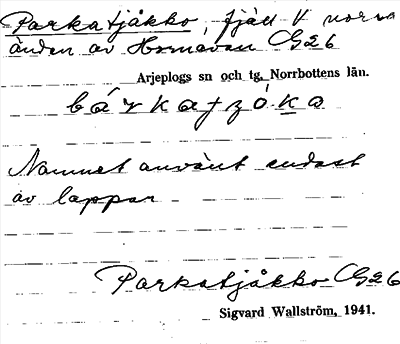 Parkatjåkko, fjäll V norra
änden av Hornavan G26
Arjeplogs sn och tg, Norrbottens län.
Namnet använt endast
av lappar
Parkatjåkko G26
Sigvard Wallström, 1941.